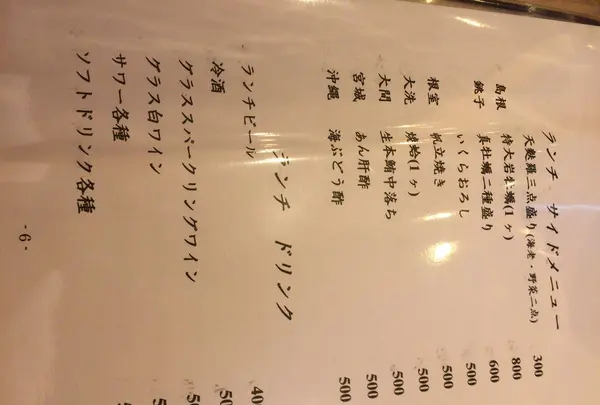 ランチ サイドメニュー
天麩羅三点盛り(海老・野菜二点) 300
島根 特大岩牡蠣(1ヶ) 800
銚子 真牡蠣二種盛り 600
いくらおろし 500
根室 帆立焼き 500
大洗 焼蛤(1ヶ) 500
大間 生本鮪中落ち 500
宮城 あん肝酢 500
沖縄 海ぶどう酢 500
ランチ ドリンク
ランチビール
冷酒
グラススパークリングワイン
グラス白ワイン
サワー各種
ソフトドリンク各種
- 6 -